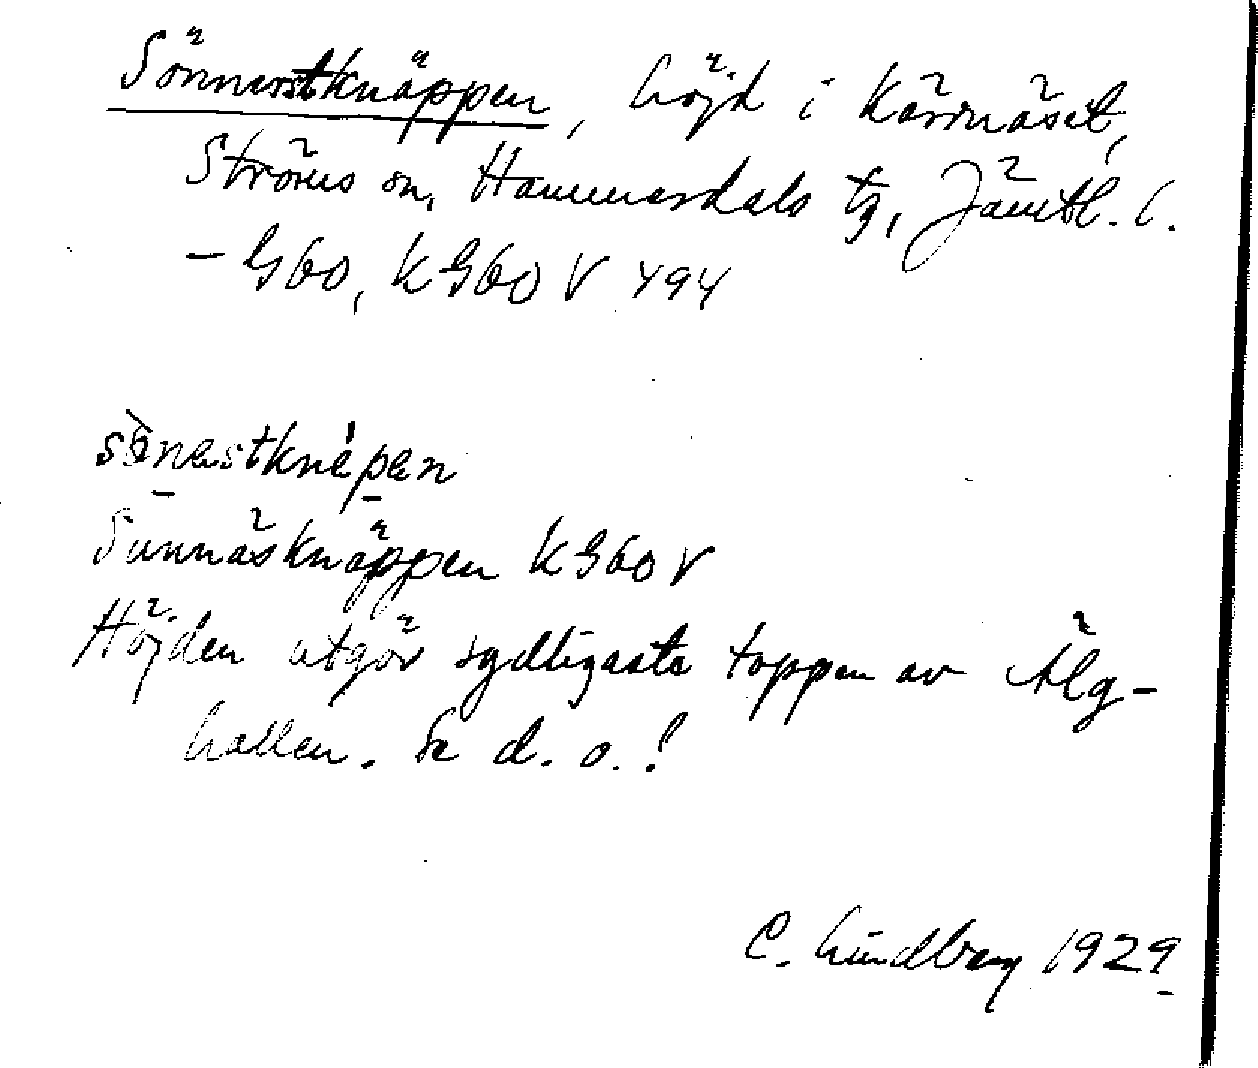 Sönnerstknäppen, höjd i Kärrnäset,
Ströms sn, Hammerdals tg, Jämtl. l.
– G60, KG60 V 494
sönestknepen
Sunnäsknäppen KG60 V
Höjden utgör sydligaste toppen av Älg-
hallen. Se d. o.!
C. Lindberg 1929